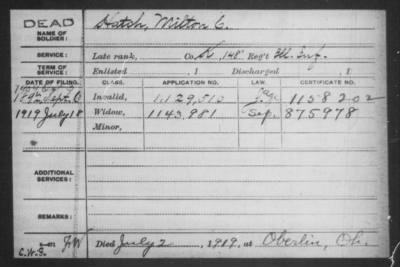 DEAD
NAME OF SOLDIER: Hatch, Milton C.
SERVICE: Late rank, Co. 148 Reg't Ill. Inf.
TERM OF SERVICE: Enlisted , 1 Discharged , 1
DATE OF FILING. CLASS. APPLICATION NO. LAW. CERTIFICATE NO.
Sept. Invalid, 1,129,510 1158202
1919 July 18 Widow, 1143,981 Sep. 875978
Minor,
ADDITIONAL SERVICES:
REMARKS:
Died July 2, 1919, at Oberlin, Oh.
C.W.S.